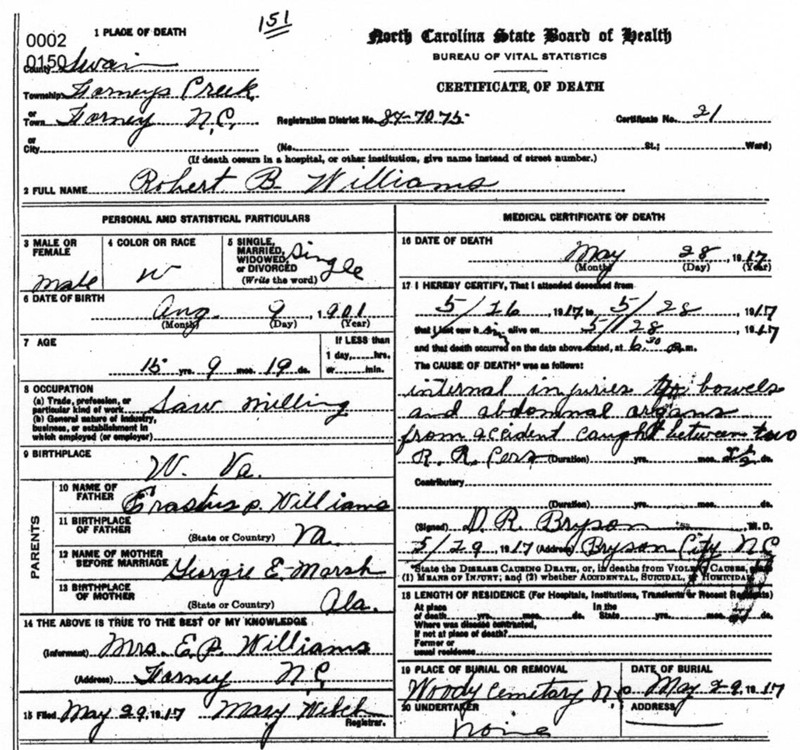 151
0002
0150
1 PLACE OF DEATH
County Swain
Township Forneys Creek
or
Town Forney N.C.
or
City
North Carolina State Board of Health
BUREAU OF VITAL STATISTICS
CERTIFICATE OF DEATH
Registration District No. 84-7075 Certificate No. 21
(No. St.; Ward)
(If death occurs in a hospital, or other institution, give name instead of street number.)
2 FULL NAME Robert B. Williams
PERSONAL AND STATISTICAL PARTICULARS
3 MALE OR FEMALE
Male
4 COLOR OR RACE
W
5 SINGLE, MARRIED, WIDOWED or DIVORCED
(Write the word)
Single
6 DATE OF BIRTH
Aug. 9, 1901
(Month) (Day) (Year)
7 AGE
15 yrs. 9 mos. 19 ds.
If LESS than
1 day, hrs.
or min.
8 OCCUPATION
(a) Trade, profession, or
particular kind of work Saw milling
(b) General nature of industry,
business, or establishment in
which employed (or employer)
9 BIRTHPLACE
W. Va.
PARENTS
10 NAME OF FATHER
Erastus P. Williams
11 BIRTHPLACE OF FATHER
(State or Country) Va.
12 NAME OF MOTHER BEFORE MARRIAGE
Georgie E. Marsh
13 BIRTHPLACE OF MOTHER
(State or Country) Ala.
14 THE ABOVE IS TRUE TO THE BEST OF MY KNOWLEDGE
(Informant) Mrs. E.P. Williams
(Address) Forney N.C.
15 Filed May 29, 1917 Mary Welch
Registrar.
MEDICAL CERTIFICATE OF DEATH
16 DATE OF DEATH
May 28, 1917
(Month) (Day) (Year)
17 I HEREBY CERTIFY, That I attended deceased from
5/26, 1917, to 5/28, 1917
that I last saw him alive on 5/28, 1917
and that death occurred on the date above stated, at 6.30 m.
The CAUSE OF DEATH* was as follows:
internal injuries bowels
and abdomnal organs
from accident caught between two
R. R. Cars (Duration) yrs. mos. 2½ ds.
Contributory
(Duration) yrs. mos. ds.
(Signed) D. R. Bryson M. D.
5/29, 1917 (Address) Bryson City NC
*State the DISEASE CAUSING DEATH, or, in deaths from VIOLENT CAUSES, state
(1) MEANS OF INJURY; and (2) whether ACCIDENTAL, SUICIDAL, or HOMICIDAL.
18 LENGTH OF RESIDENCE (For Hospitals, Institutions, Transients or Recent Residents)
At place of death yrs. mos. ds. In the State yrs. mos. ds.
Where was disease contracted,
If not at place of death?
Former or
usual residence
19 PLACE OF BURIAL OR REMOVAL
Woody Cemetary N.C.
DATE OF BURIAL
May 29, 1917
20 UNDERTAKER
None
ADDRESS